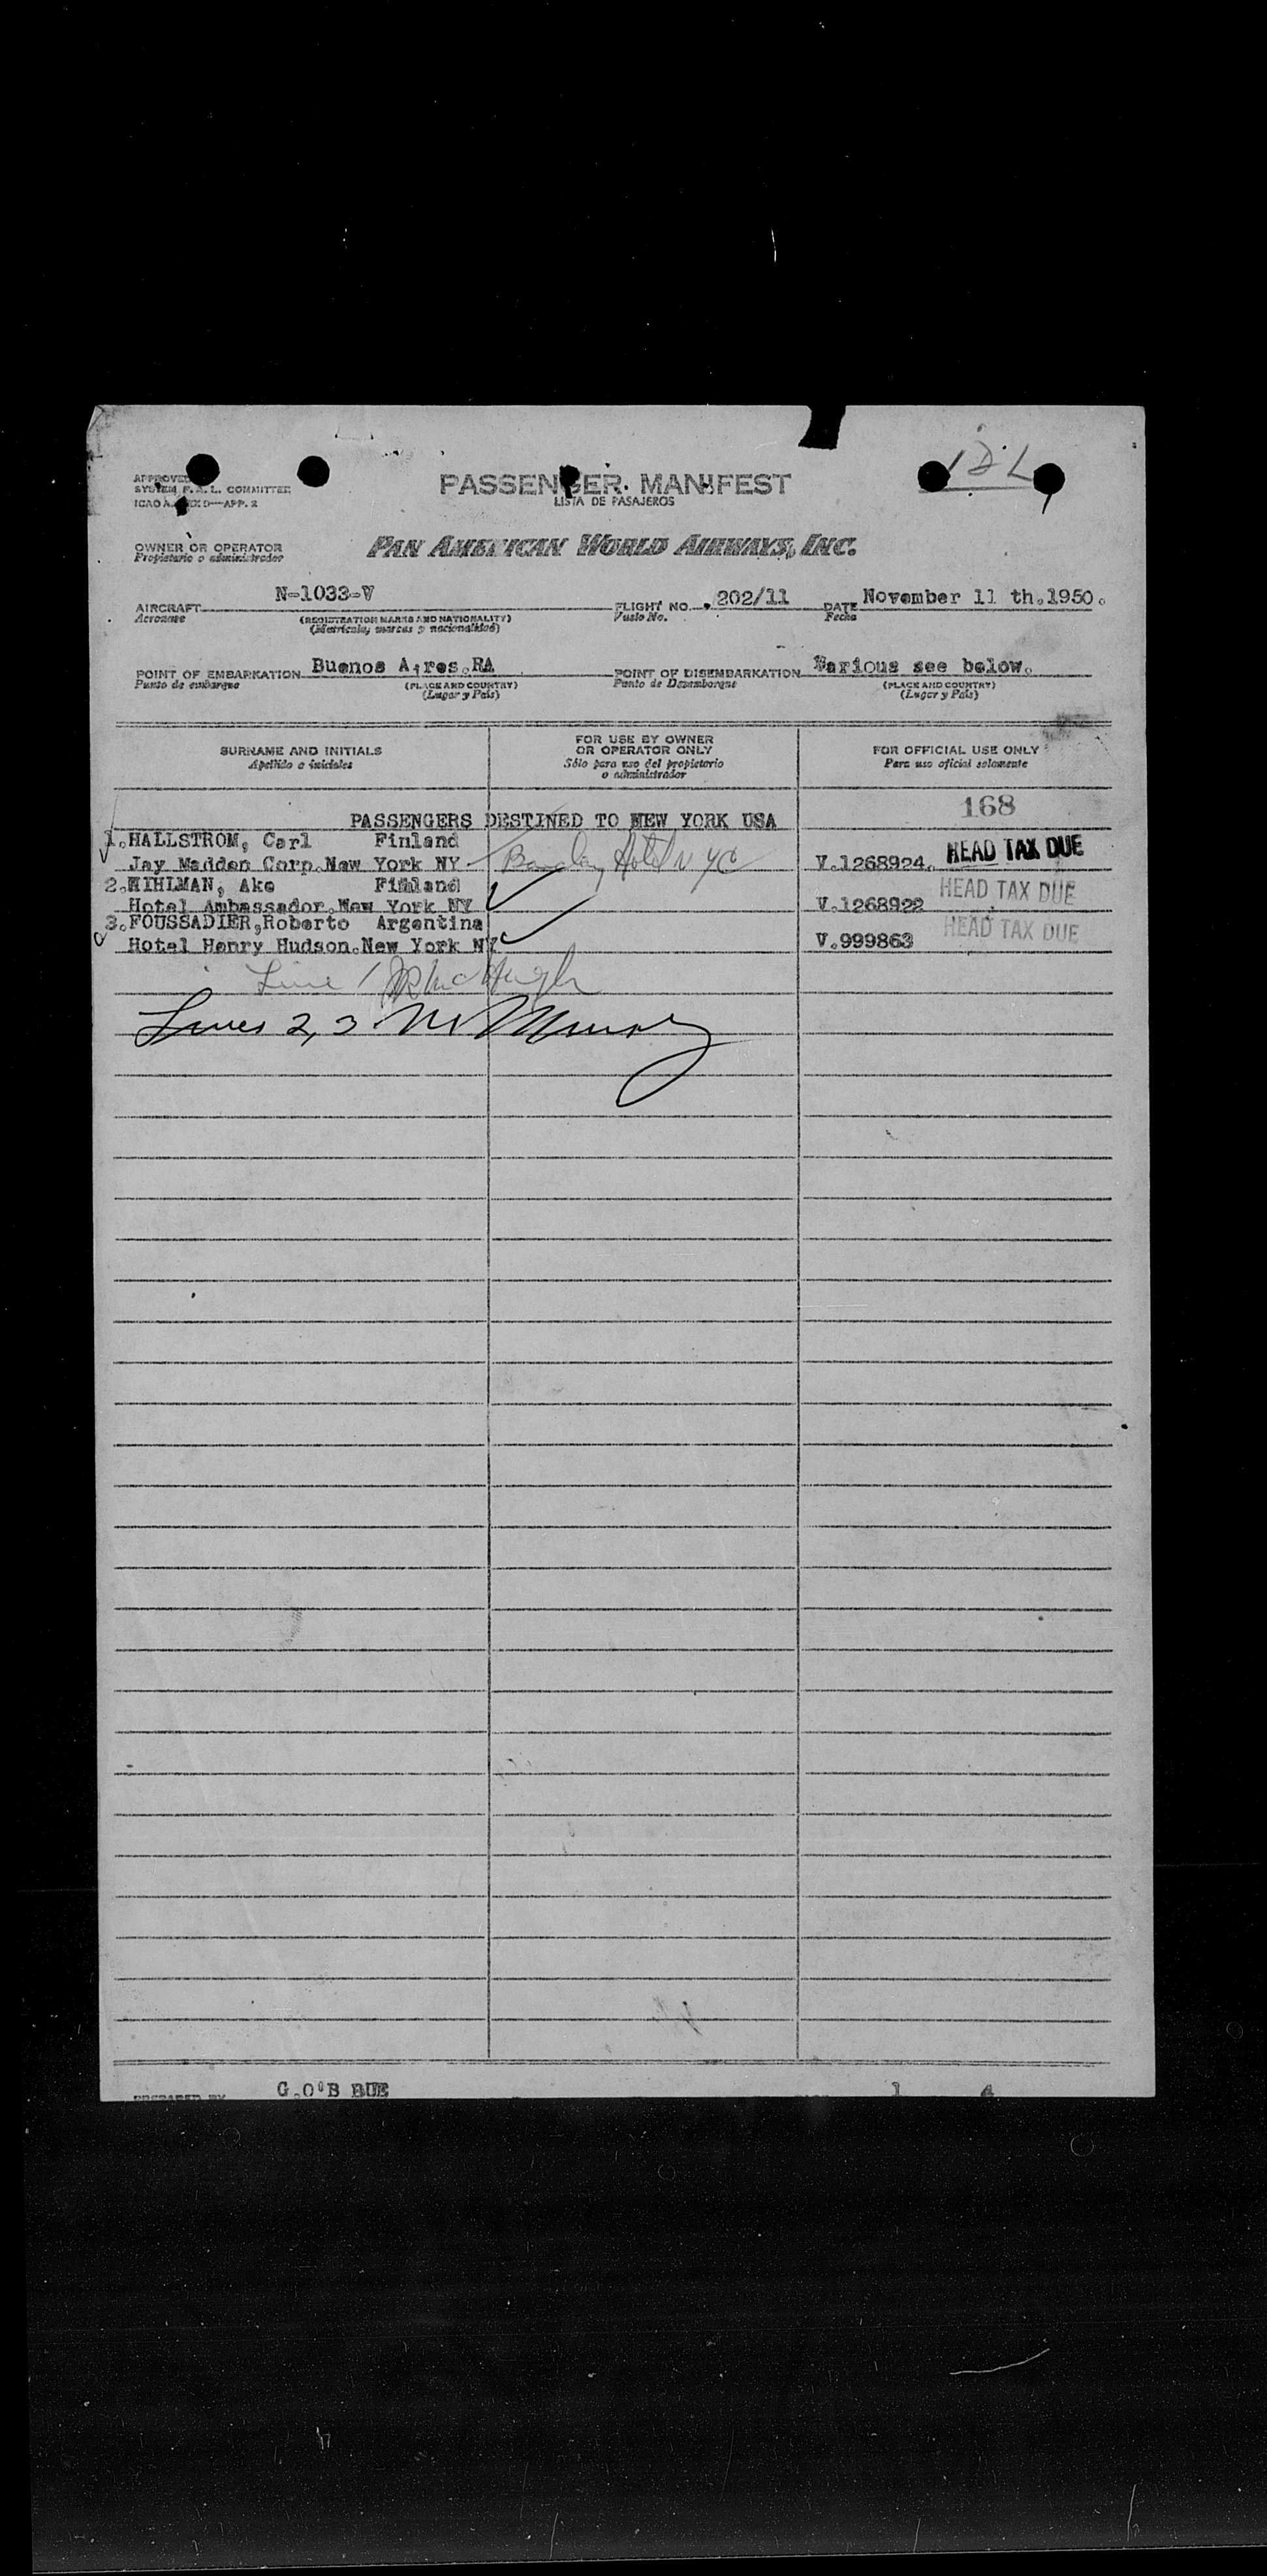 PASSENGER MANIFEST
LISTA DE PASAJEROS
APPROVED
SYSTEM F.A.L. COMMITTEE
ICAO APP. 2
OWNER OR OPERATOR
Propietario o administrador
PAN AMERICAN WORLD AIRWAYS, INC.
AIRCRAFT N-1033-V FLIGHT NO. 202/11 DATE November 11 th.1950.
Aeronave (REGISTRATION MARKS AND NATIONALITY) Vuelo No. Fecha
(Matricula, marcas y nacionalidad)
POINT OF EMBARKATION Buenos Aires.RA POINT OF DISEMBARKATION Various see below.
Punto de embarque (PLACE AND COUNTRY) Punto de Desembarque (PLACE AND COUNTRY)
(Lugar y País) (Lugar y País)
SURNAME AND INITIALS
Apellido e iniciales
FOR USE BY OWNER
OR OPERATOR ONLY
Sólo para uso del propietario
o administrador
FOR OFFICIAL USE ONLY
Para uso oficial solamente
168
PASSENGERS DESTINED TO NEW YORK USA
1.HALLSTROM, Carl Finland
Jay Madden Corp.New York NY Hotel N Y C V.1268924. HEAD TAX DUE
2.WIHLMAN, Ake Finland HEAD TAX DUE
Hotel Ambassador.New York NY V.1268922
3.FOUSSADIER,Roberto Argentina HEAD TAX DUE
Hotel Henry Hudson.New York NY V.999863
Line 1
Lines 2, 3
PREPARED BY G.O'B BUE 1 4